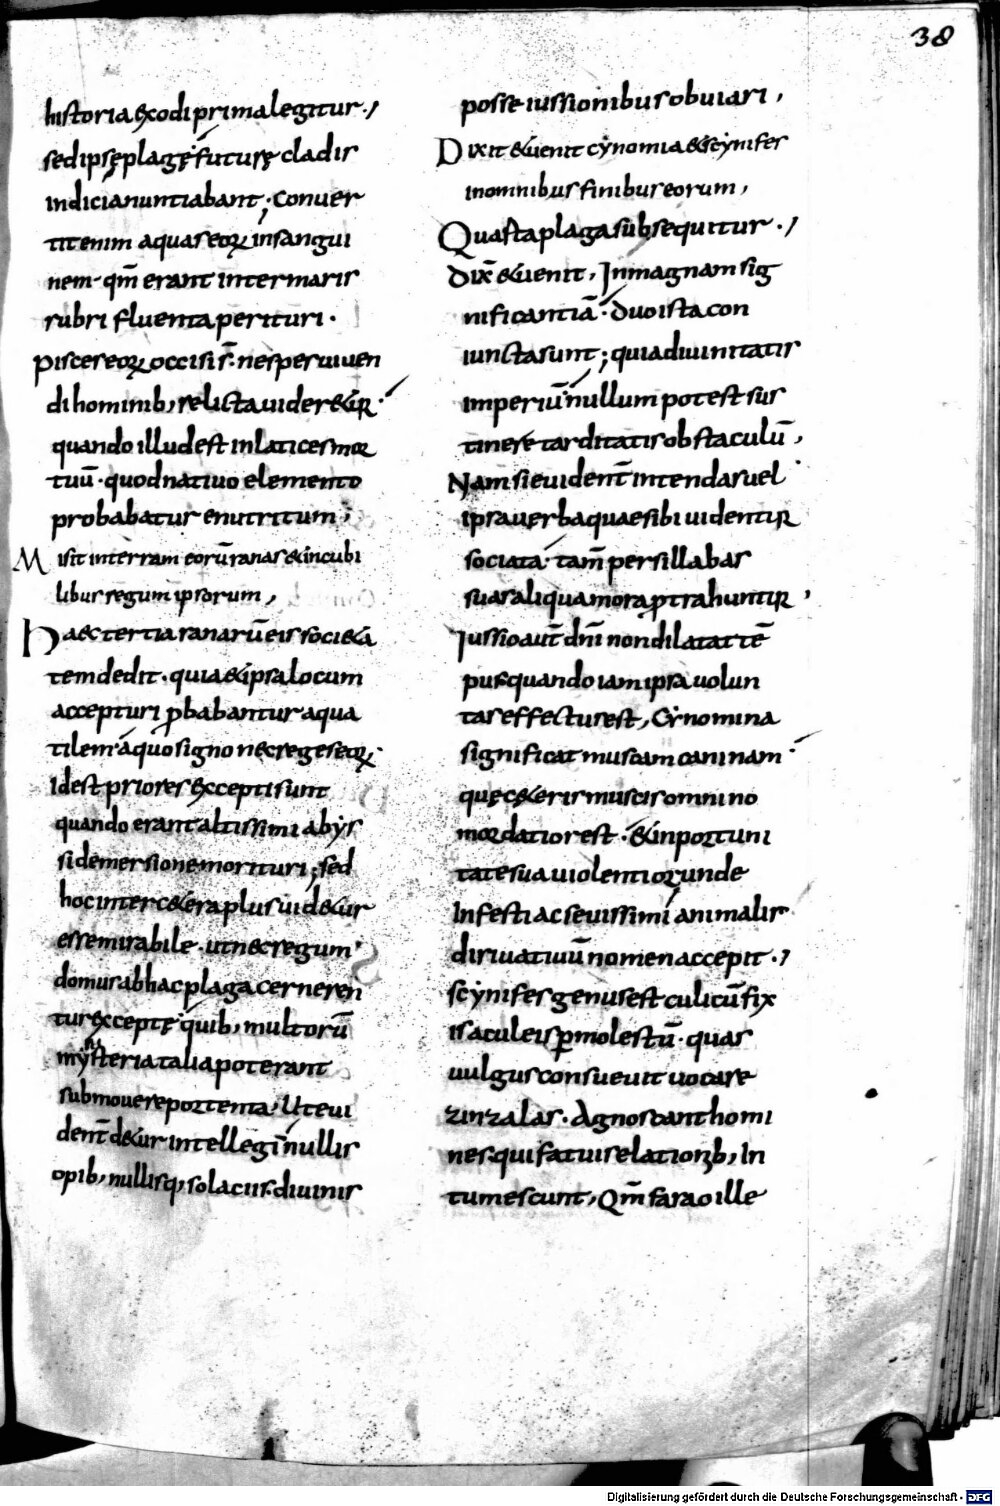 38
historia exodi prima legitur.
sed ipsę plagę futurę cladis
indicia nuntiabant; Conuer
tit enim aquas eoꝝ in sangui
nem· qm̄ erant inter maris
rubri fluenta perituri·
pisces eoꝝ occisi s̄· ne super uiuen
di hominib; relicta uider&ur·
quando illud est in latices mor
tuū· quod natiuo elemento
probabatur enutritum;
Misit in terram eorū ranas &incubi
libus regum ipsorum,
Haec tertia ranarū eis soci&a
tem dedit· quia &ipsa locum
accepturi ꝓbabantur aqua
tilem· a quo signo nec reges eoꝝ·
id est priores excepti sunt
quando erant altissimi abys
si demersione morituri; sed
hoc inter c&era plus uid&ur
esse mirabile· ut nec regum
domus ab hac plaga cerneren
tur exceptę· quib; multorū
mysteria talia poterant
submouere portenta· Ut eui
dent̄ d&ur intellegi nullis
opib; nullisq; solaciis· diuinis
posse iussionibus obuiari,
Dixit &uenit cynomia &scynifes
in omnibus finibus eorum,
Quasta plaga subsequitur·
Dix̄ &uenit, In magnam sig
nificantiā· duo ista con
iuncta sunt; quia diuinitatis
imperiū nullum potest sus
tinere tarditatis obstaculū,
Nam si euident̄ intendas uel
ipsa uerba quae sibi uidentur
sociata· tam̄ per sillabas
suas aliqua mora ꝓtrahuntur,
Iussio aut̄ dn̄i non dilatat tē
pus quando iam ipsa uolun
tas effectus est, Cynomina
significat muscam caninam·
quę c&eris muscis omnino
mordatior est· &inportuni
tate sua uiolentior unde
Infesti ac seuissimi animalis
diriuatiuū nomen accepit·
scynifes genus est culicū fix
is aculeis ꝑmolestū· quas
uulgus consueuit uocare
zinzalas· Agnoscant homi
nes qui fatuis elationib; In
tumescunt, Qm̄ farao ille
Digitalisierung gefördert durch die Deutsche Forschungsgemeinschaft - DFG